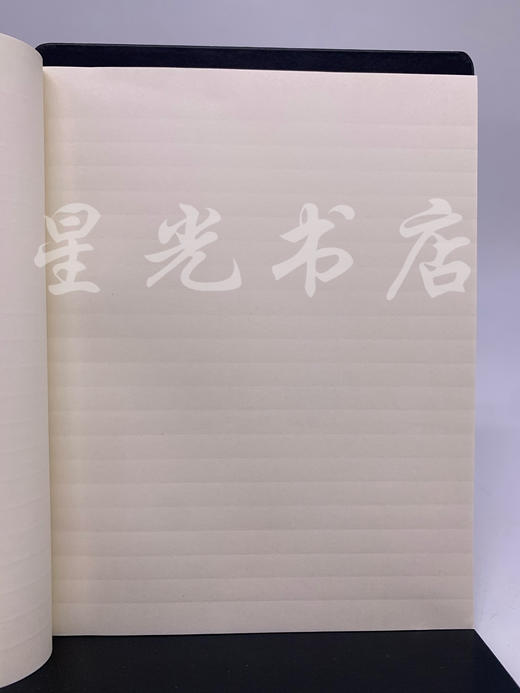 星光书店